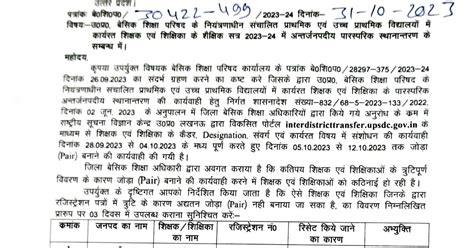 उत्तर प्रदेश।
पत्रांक बे०शि०प०/ 30422-499 /2023-24 दिनांक- 31-10-2023
विषय-उ०प्र०, बेसिक शिक्षा परिषद के नियंत्रणाधीन संचालित प्राथमिक एवं उच्च प्राथमिक विद्यालयों में
कार्यरत शिक्षक एवं शिक्षिका के शैक्षिक सत्र 2023-24 में अन्तर्जनपदीय पारस्परिक स्थानान्तरण के
सम्बन्ध में।
महोदय,
कृपया उपर्युक्त विषयक बेसिक शिक्षा परिषद कार्यालय के पत्रांक बे०शि०प०/28297-375/2023-24
दिनांक 26.09.2023 का संदर्भ ग्रहण करने का कष्ट करें जिसके द्वारा उ०प्र०, बेसिक शिक्षा परिषद के
नियंत्रणाधीन संचालित प्राथमिक एवं उच्च प्राथमिक विद्यालयों में कार्यरत शिक्षक एवं शिक्षिका के पारस्परिक
अन्तर्जनपदीय स्थानान्तरण की कार्यवाही हेतु निर्गत शासनादेश संख्या-832/68-5-2023-133/2022,
दिनांक 02 जून, 2023 के अनुपालन में जिला बेसिक शिक्षा अधिकारियों द्वारा किये गये अनुरोध के क्रम में
राष्ट्रीय सूचना विज्ञान केन्द्र उ०प्र० लखनऊ द्वारा विकसित पोर्टल interdistricttransfer.upsdc.gov.in के
माध्यम से शिक्षक एवं शिक्षिका के कैडर, Designation, संवर्ग एवं कार्यरत विषय में संशोधन की कार्यवाही
दिनांक 28.09.2023 से 04.10.2023 के मध्य पूर्ण करते हुए दिनांक 05.10.2023 से 12.10.2023 तक जोड़ा
(Pair) बनाने की कार्यवाही की गयी है।
जिला बेसिक शिक्षा अधिकारी द्वारा अवगत कराया है कि कतिपय शिक्षक एवं शिक्षिकाओं के त्रुटिपूर्ण
विवरण के कारण जोड़ा (Pair) बनाने की कार्यवाही करने में शिक्षक एवं शिक्षिकाओं को कठिनाई हो रही है।
उपर्युक्त के दृष्टिगत आपको निर्देशित किया जाता है कि ऐसे शिक्षक एवं शिक्षिका जिनके द्वारा
रजिस्ट्रेशन पत्रों में त्रुटि के कारण अद्यतन जोड़ा (Pair) नही बनाया जा सका है, का विवरण निम्नलिखित
प्रारुप पर 03 दिवस में उपलब्ध कराना सुनिश्चित करें:-
क्रमांक जनपद का नाम शिक्षक/शिक्षिका का नाम रजिस्ट्रेशन नं0 रिसेट किये जाने का कारण अभ्युक्ति